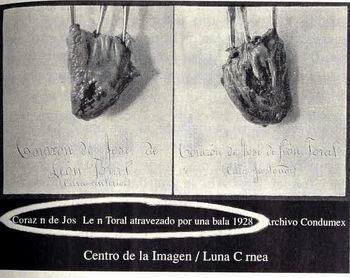 Corazón de José de
León Toral
(Cara anterior)
Corazón de José de León Toral
(Cara posterior)
Coraz n de Jos Le n Toral atravezado por una bala 1928 Archivo Condumex
Centro de la Imagen / Luna C rnea